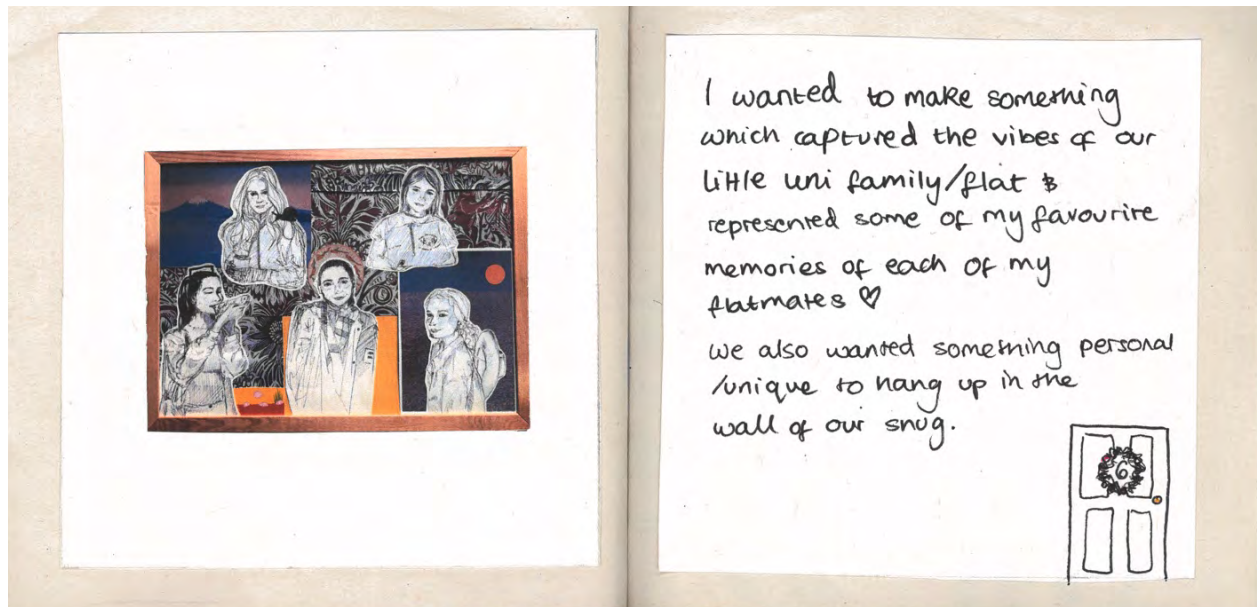 I wanted to make something
which captured the vibes of our
little uni family/flat &
represented some of my favourire
memories of each of my
flatmates ♡
we also wanted something personal
/unique to hang up in the
wall of our snug.
6